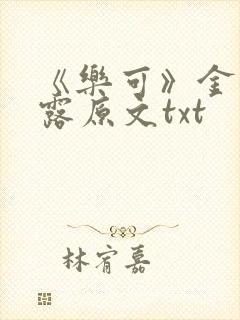 《樂可》金
露原文txt
林宥嘉